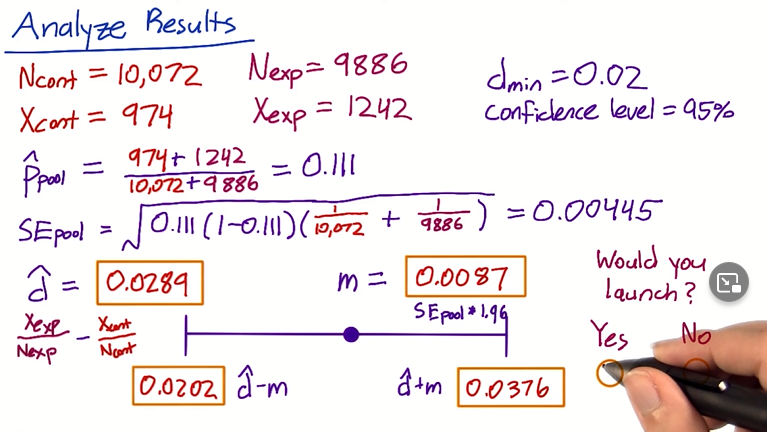 Analyze Results
Ncont = 10,072
Nexp = 9886
Xcont = 974
Xexp = 1242
dmin = 0.02
confidence level = 95%
p̂pool = 974 + 1242 / 10,072 + 9886 = 0.111
SEpool = √0.111(1-0.111)(1/10,072 + 1/9886) = 0.00445
d̂ = 0.0289
m = 0.0087
SEpool * 1.96
Xexp/Nexp - Xcont/Ncont
0.0202 d̂-m
d̂+m 0.0376
Would you
launch?
Yes No